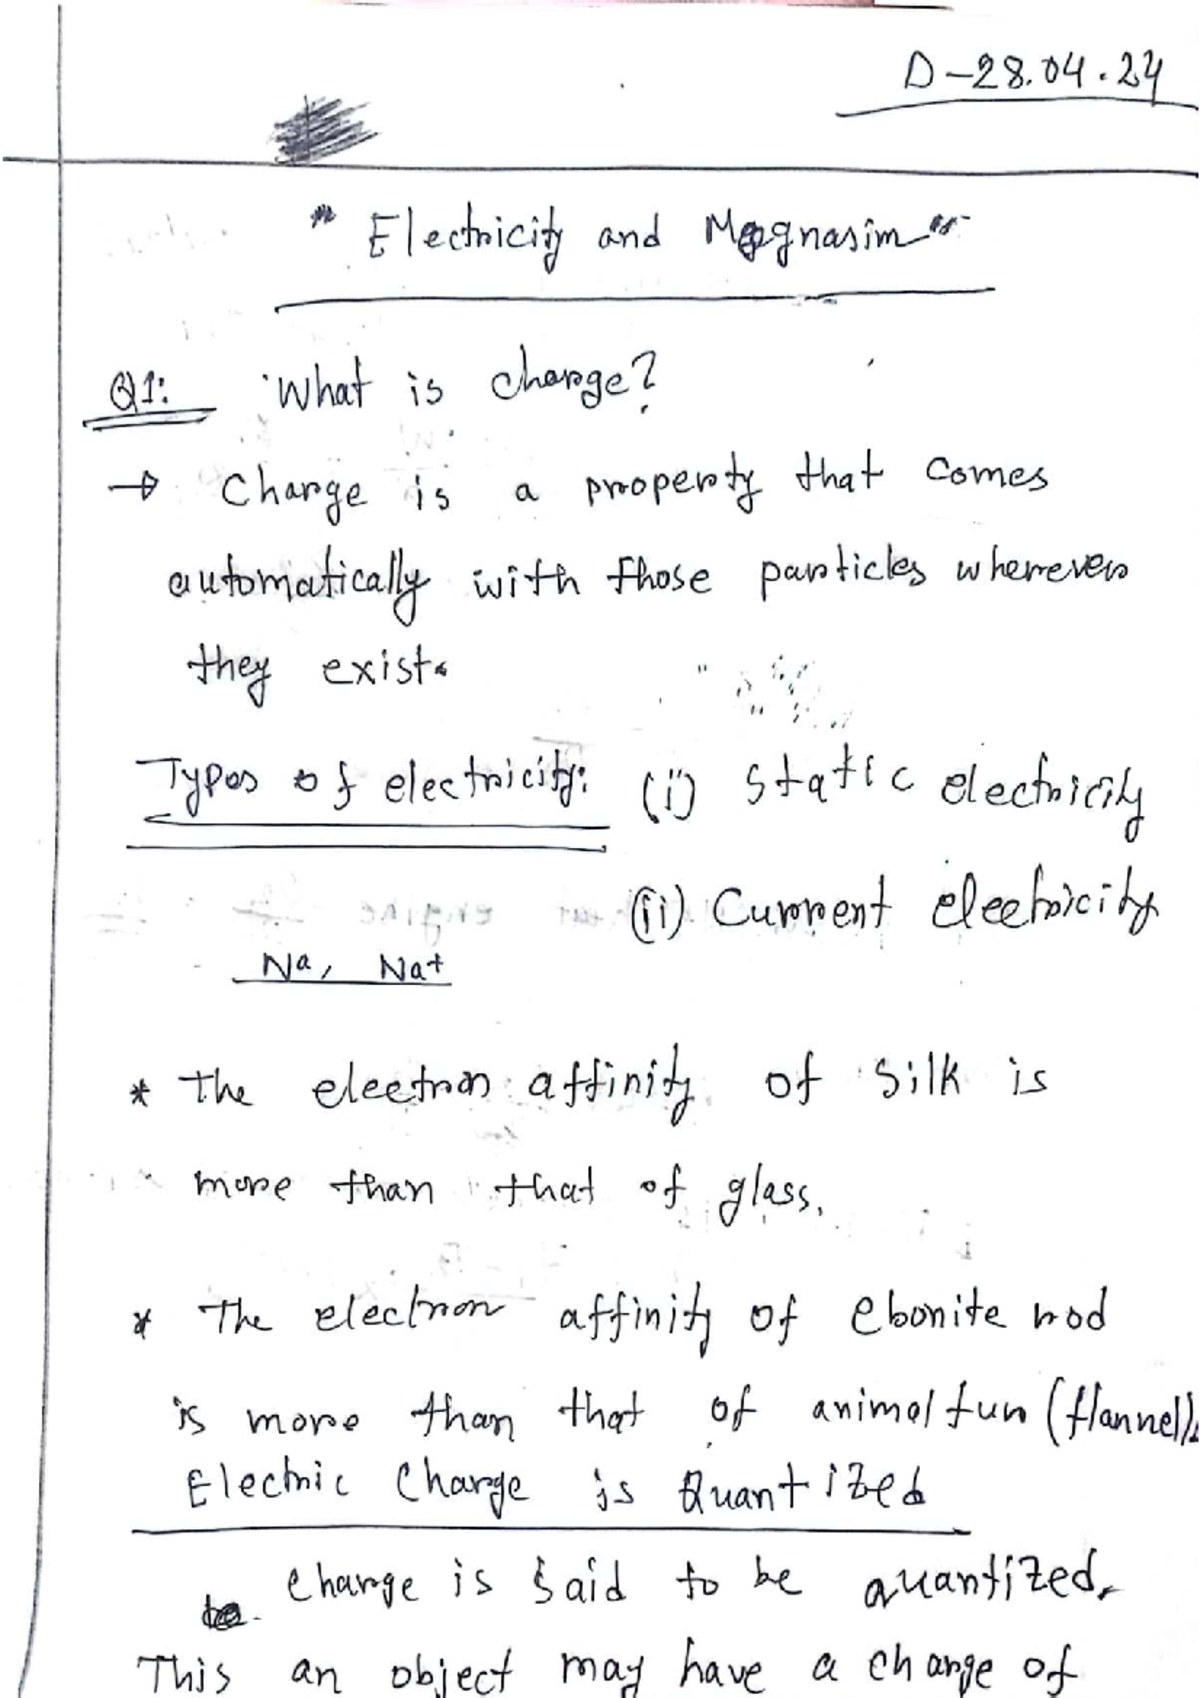 D-28.04.24
" Electricity and Magnasim "
Q1: What is charge?
→ Charge is a property that comes
automatically with those particles wherever
they exist.
Types of electricity: (i) Static electricity
(ii) Current electricity
Na, Na+
* The electron affinity of silk is
more than that of glass.
* The electron affinity of ebonite rod
is more than that of animal fur (flannel).
Electric Charge is Quantized
Charge is said to be quantized.
This an object may have a charge of